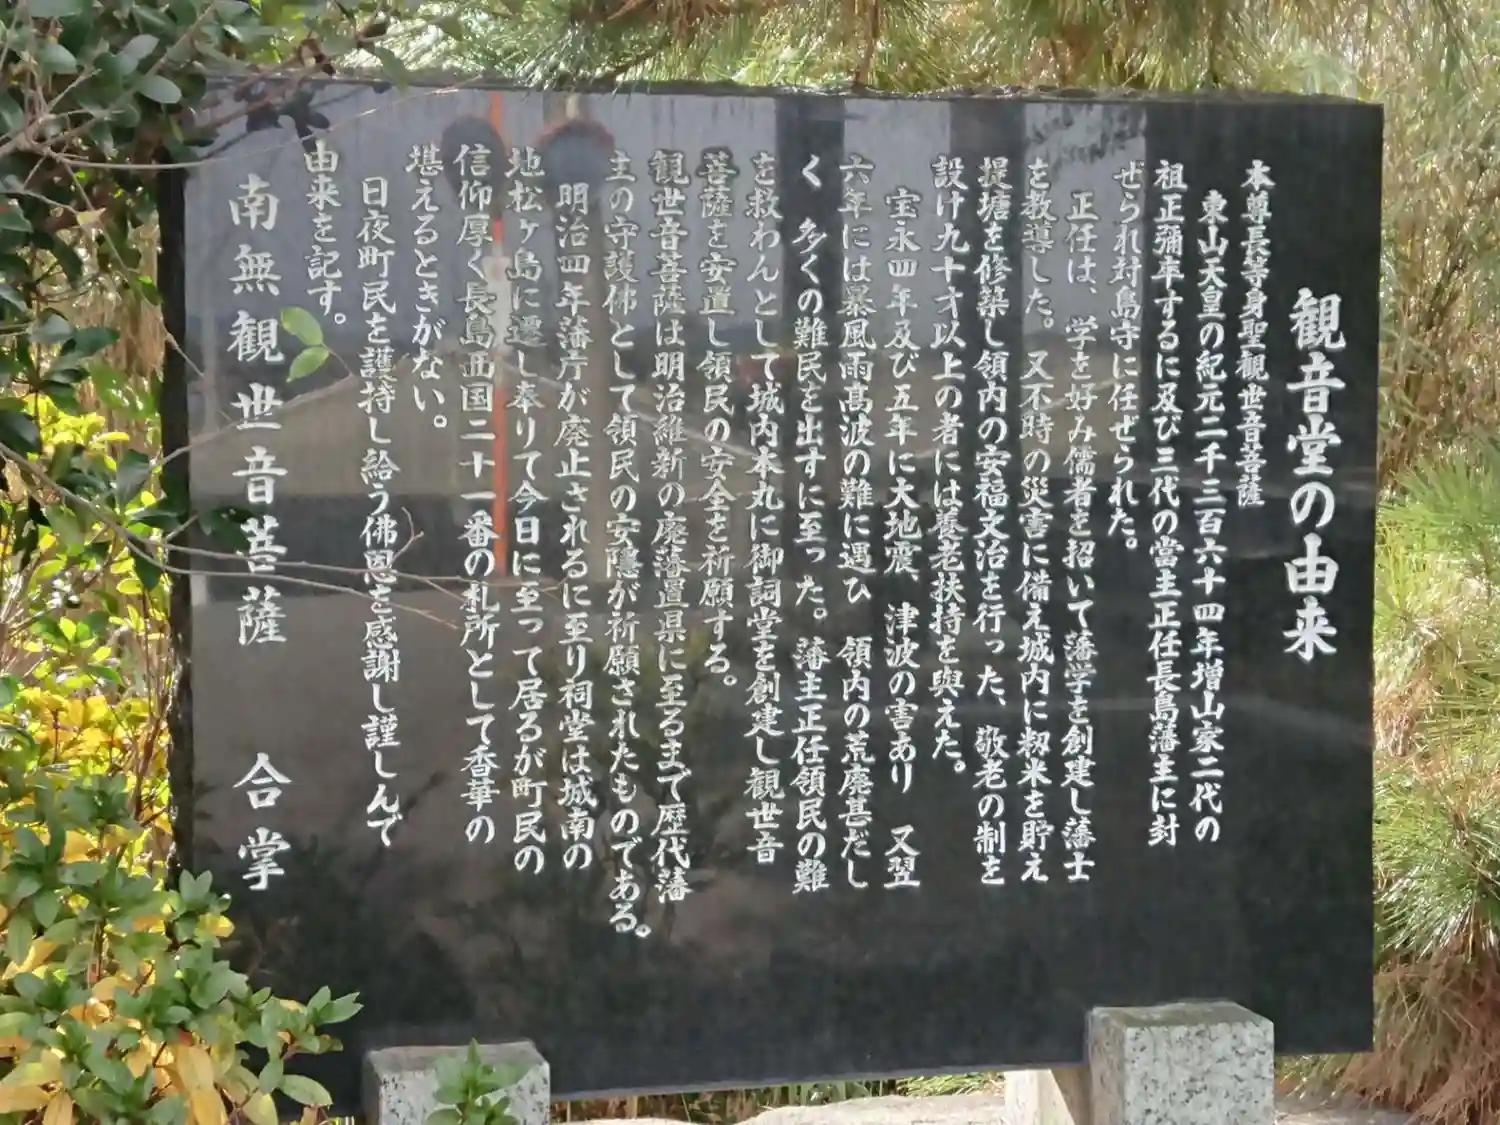 観音堂の由来
本尊長等身聖観世音菩薩
東山天皇の紀元二千三百六十四年増山家二代の
祖正彌卒するに及び三代の當主正任長島藩主に封
ぜられ対島守に任ぜられた。
正任は、学を好み儒者を招いて藩学を創建し藩士
を教導した。又不時の災害に備え城内に籾米を貯え
提塘を修築し領内の安福文治を行った、敬老の制を
設け九十才以上の者には養老扶持を與えた。
宝永四年及び五年に大地震、津波の害あり 又翌
六年には暴風雨高波の難に遇ひ 領内の荒廃甚だし
く 多くの難民を出すに至った。藩主正任領民の難
を救わんとして城内本丸に御詞堂を創建し観世音
菩薩を安置し領民の安全を祈願する。
観世音菩薩は明治維新の廃藩置県に至るまで歴代藩
主の守護佛として領民の安隱が祈願されたものである。
明治四年藩庁が廃止されるに至り祠堂は城南の
地松ヶ島に遷し奉りて今日に至って居るが町民の
信仰厚く長島西国二十一番の札所として香華の
堪えるときがない。
日夜町民を護持し給う佛恩を感謝し謹しんで
由来を記す。
南無観世音菩薩 合掌